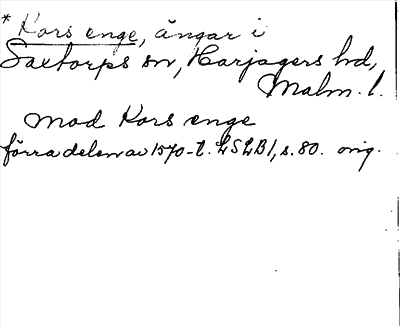 * Kors enge, ängar i
Saxtorps sn, Harjagers hd,
Malm. l.
mod Kors enge
förra delen av 1570-t. LSLB1, s. 80. orig.